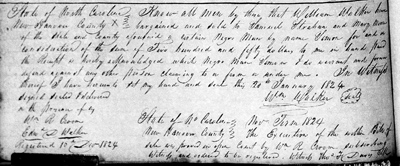 State of North Carolina } Know all men by these, that William Walker
New Hanover County } bargained and sold to Samuel
of the State and County aforesaid a certain Negro Man by name Simon for and in
consideration of the sum of Two hundred and fifty dollars to me in hand paid
the Receipt is hereby acknowledged which Negro Man Simon I do warrant and forever
defend against any other person claiming to or from or under me. In Witness
whereof I have hereunto set my hand and seal this 20th January 1824
signed sealed & delivered Wm Walker Seal
in the presence of
Wm A. Crom State of No Carolina } Nov Term 1824
Walker New Hanover County } The Execution of the within Bill of
Registered 10 Dec 1824 Sale was proved in open Court by Wm A. Crom, subscribing
Witness and ordered to be registered.